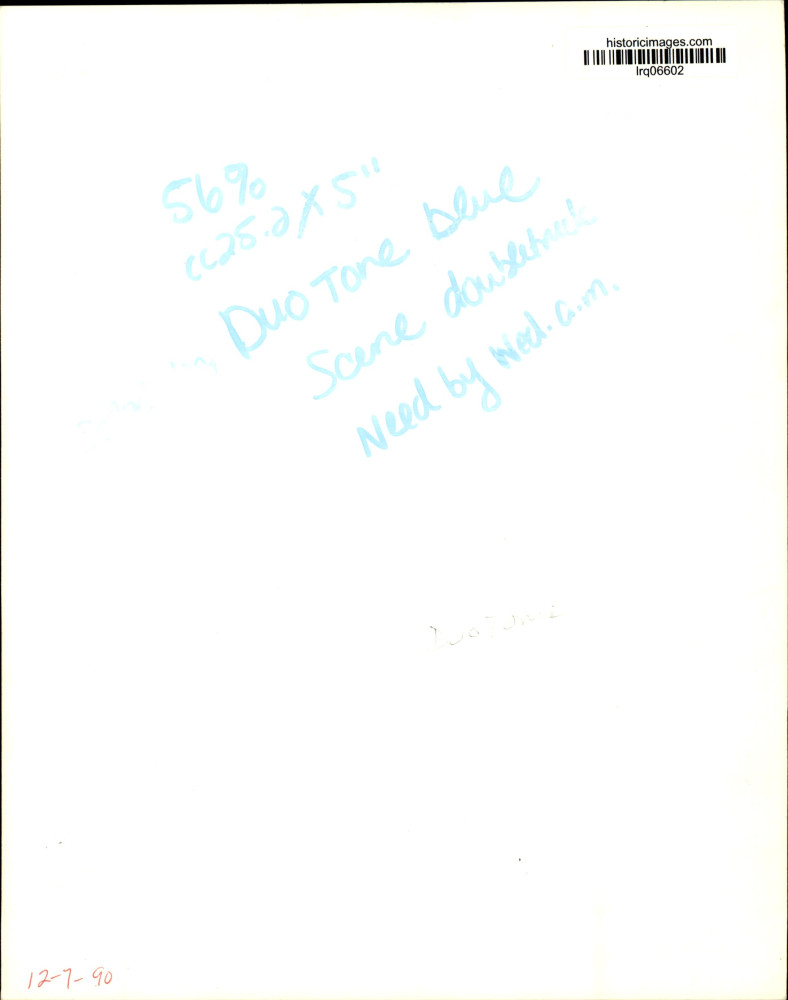 historicimages.com
lrq06602
56%
cc25.2 X 5"
Duo Tone blue
Scene doubletruck
Need by Wed. a.m.
DuoTone
12-7-90